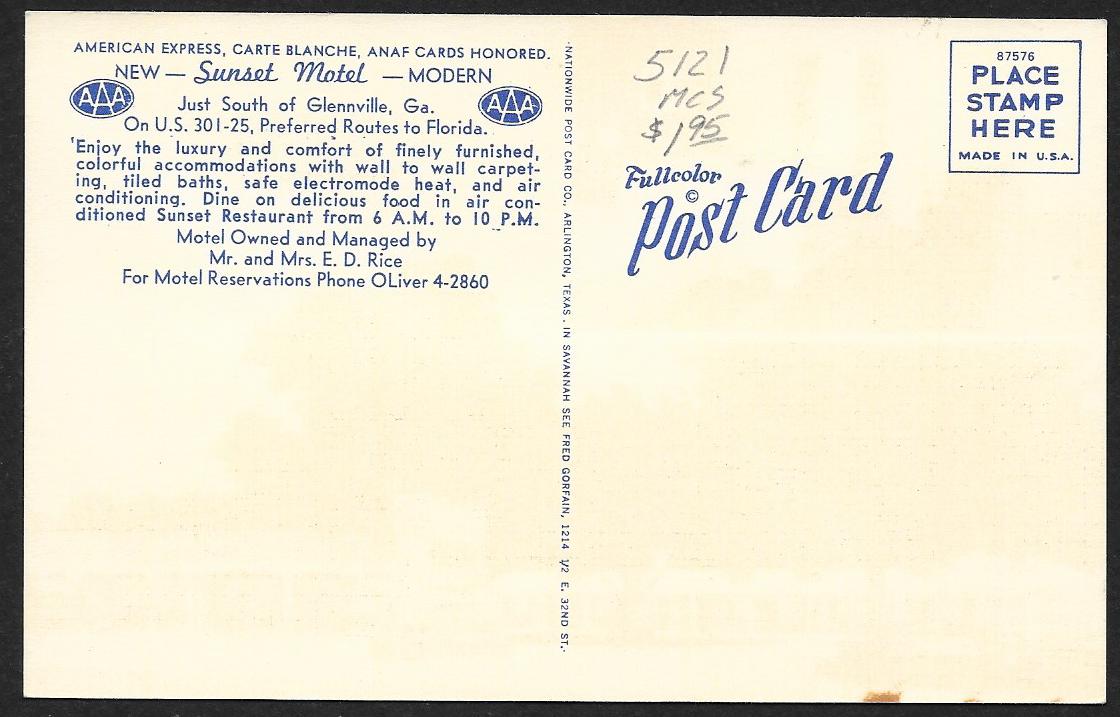 AMERICAN EXPRESS, CARTE BLANCHE, ANAF CARDS HONORED.
NEW — Sunset Motel — MODERN
AAA
AAA
Just South of Glennville, Ga.
On U.S. 301-25, Preferred Routes to Florida.
Enjoy the luxury and comfort of finely furnished,
colorful accommodations with wall to wall carpet-
ing, tiled baths, safe electromode heat, and air
conditioning. Dine on delicious food in air con-
ditioned Sunset Restaurant from 6 A.M. to 10 P.M.
Motel Owned and Managed by
Mr. and Mrs. E. D. Rice
For Motel Reservations Phone OLiver 4-2860
·NATIONWIDE POST CARD CO., ARLINGTON, TEXAS. IN SAVANNAH SEE FRED GORFAIN, 1214 1/2 E. 32ND ST.·
5121
MCS
$1.95
Fullcolor
©
Post Card
87576
PLACE
STAMP
HERE
MADE IN U.S.A.